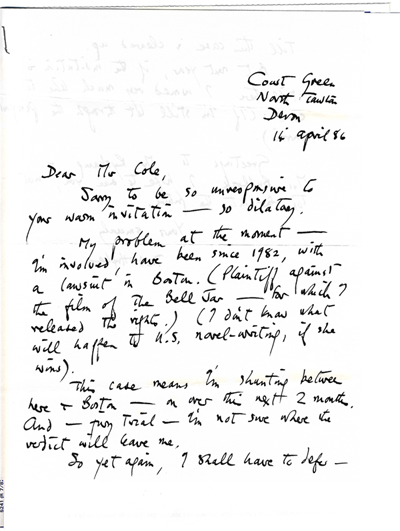 Court Green
North Tawton
Devon
16 April 86
Dear Mr Cole,
Sorry to be so unresponsive to
your warm invitation — so dilatory.
My problem at the moment —
I'm involved, have been since 1982, with
a lawsuit in Boston. (Plaintiff against
the film of The Bell Jar — for which I
released the rights.) (I don't know what
will happen to U.S. novel-writing, if she
wins).
This case means I'm shunting between
here + Boston — on over the next 2 months.
And — jury Trial — I'm not sure where the
verdict will leave me.
So yet again, I shall have to defer —